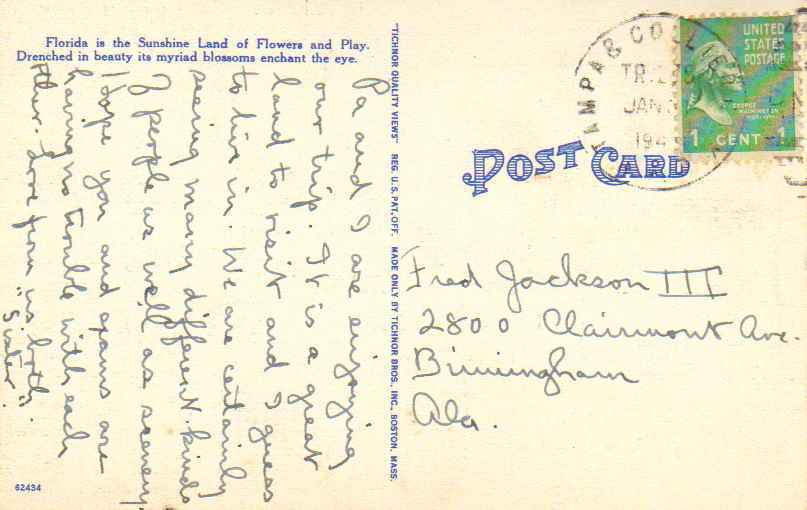 Florida is the Sunshine Land of Flowers and Play.
Drenched in beauty its myriad blossoms enchant the eye.
Pa and I are enjoying
our trip. It is a great
land to visit and I guess
to live in. We are certainly
seeing many different kinds
of people as well as scenery
I hope you and are
having no trouble with each
other. Love from us both.
"Sister".
62434
"TICHNOR QUALITY VIEWS" REG. U. S. PAT. OFF. MADE ONLY BY TICHNOR BROS., INC., BOSTON, MASS.
TAMPA &
TR.
JAN
194
UNITED
STATES
POSTAGE
GEORGE
WASHINGTON
1 CENT 1
POST CARD
Fred Jackson III
2800 Clairmont Ave.
Birmingham
Ala.